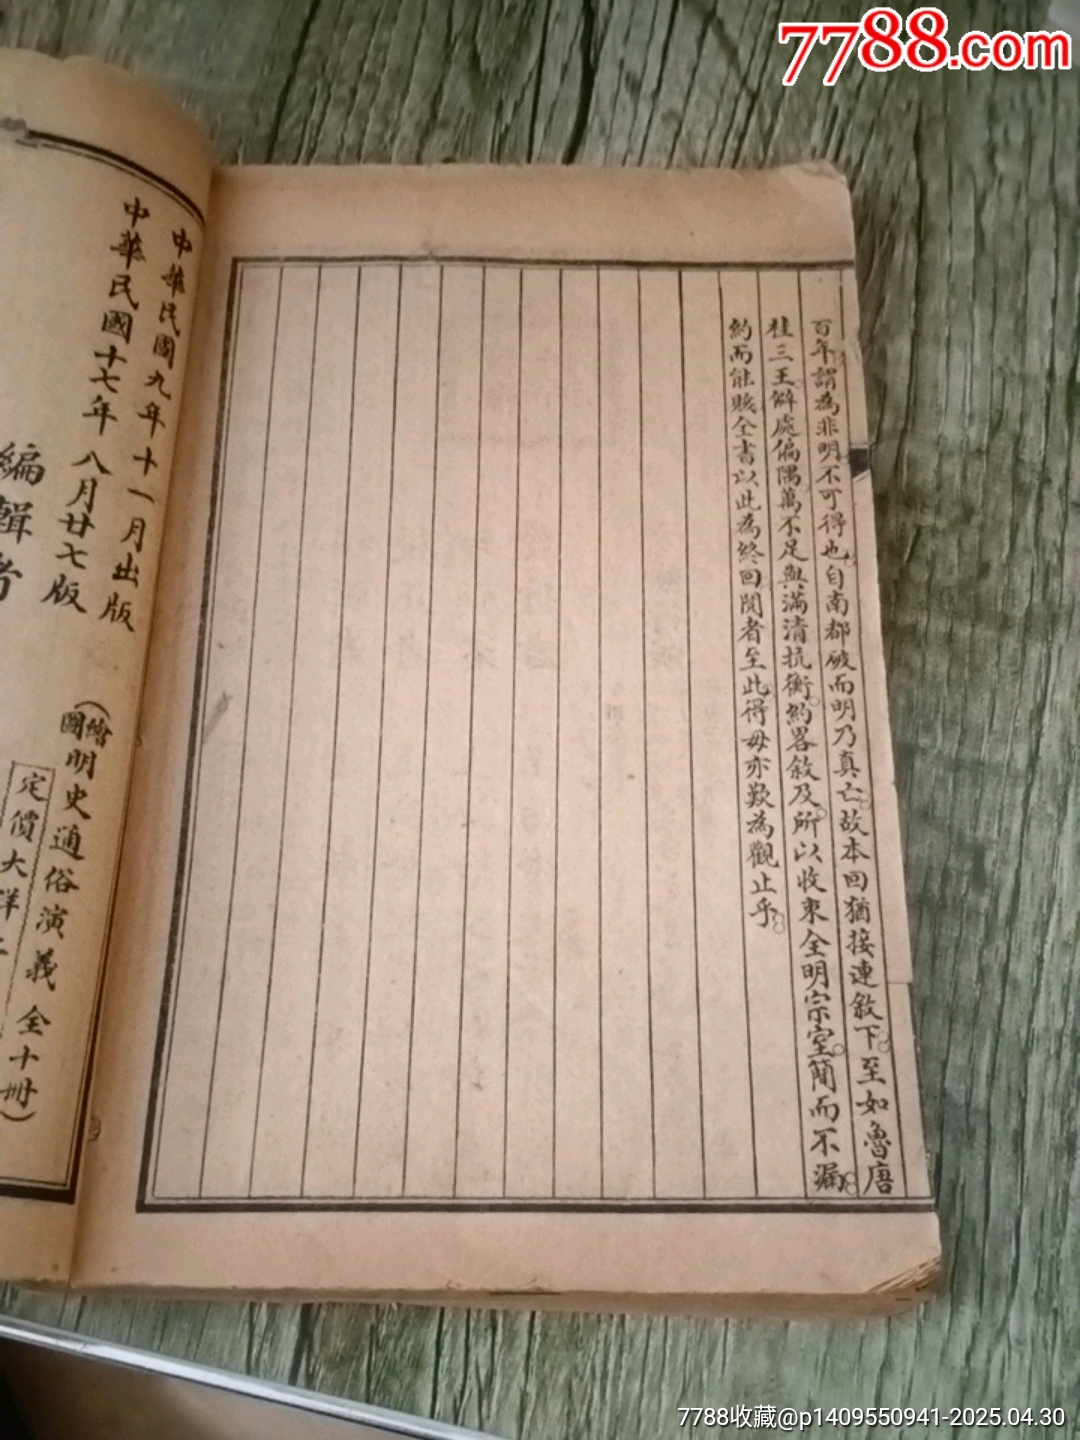 7788.com
百年謂為非明不可得也自南都破而明乃真亡故本回猶接連敘下至如魯唐
桂三王僻處偏隅萬不足與滿清抗衡約畧敘及所以收束全明宗室簡而不漏
約而能賅全書以此為終回閱者至此得毋亦歎為觀止乎
中華民國九年十一月出版
中華民國十七年八月廿七版
編輯者
(繪圖明史通俗演義全十冊)
定價大洋
7788收藏@p1409550941-2025.04.30